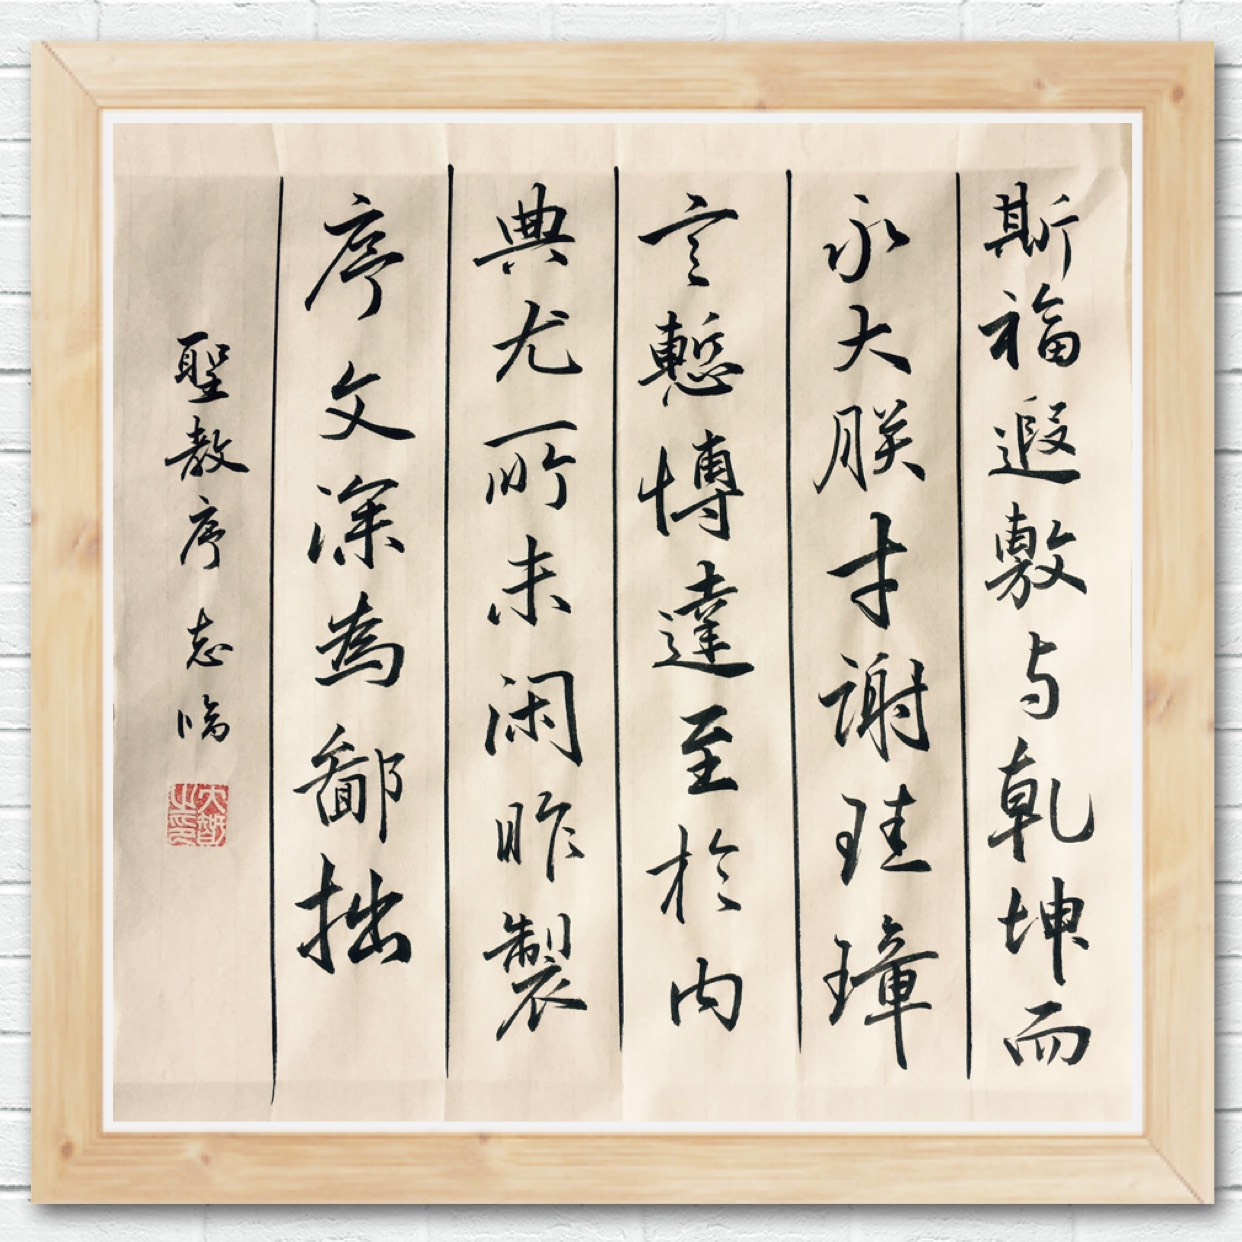 斯福遐敷与乾坤而
永大朕才謝珪璋
言慙博達至於内
典尤所未闲昨製
序文深為鄙拙
聖教序 志臨